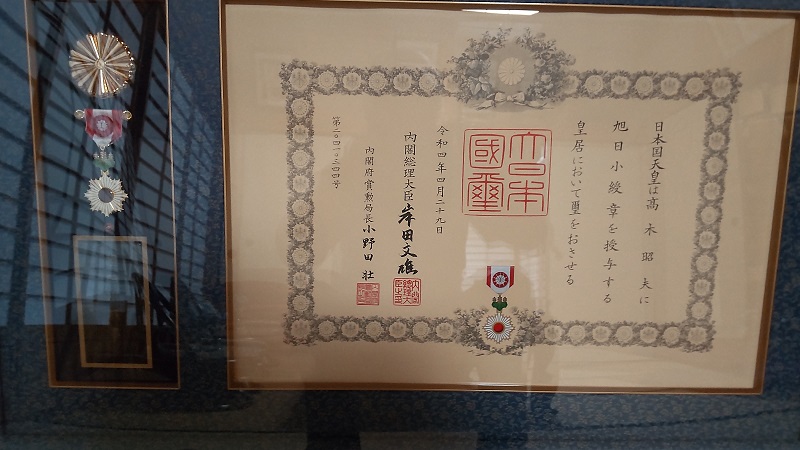 日本国天皇は高木昭夫に
旭日小綬章を授与する
皇居において璽をおさせる
大日本
國璽
令和四年四月二十九日
内閣総理大臣岸田文雄
内閣府賞勲局長小野田壮